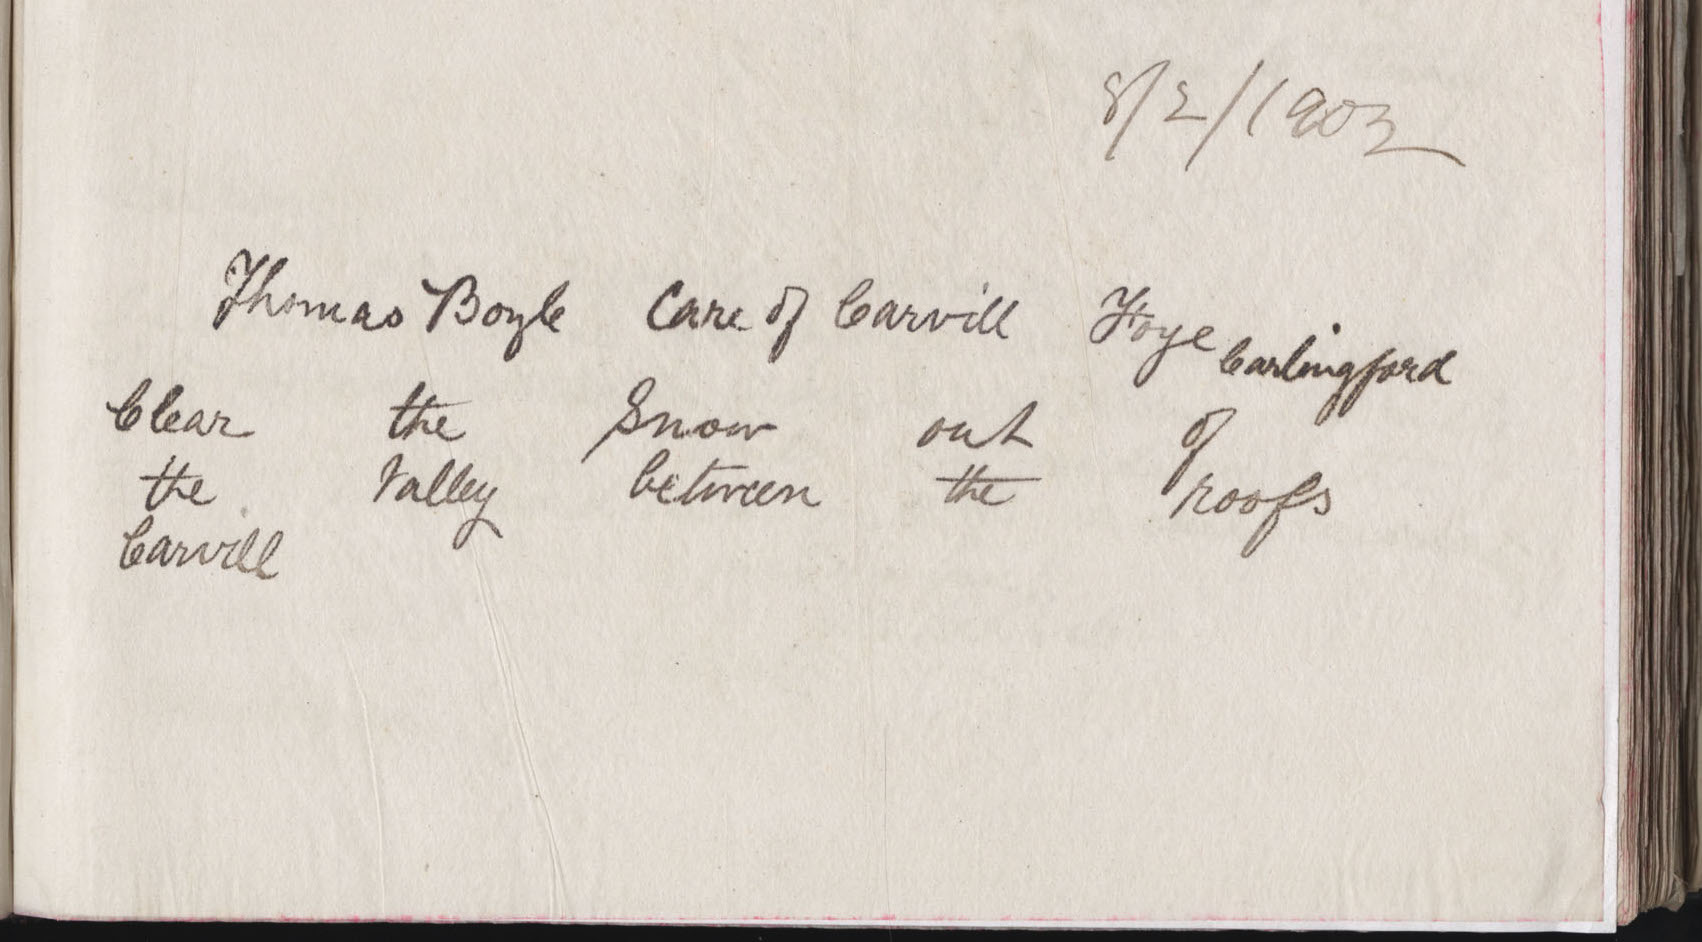 8/2/1902
Thomas Boyle Care of Carvill Foye Carlingford
Clear the Snow out of
the Valley between the roofs
Carvill